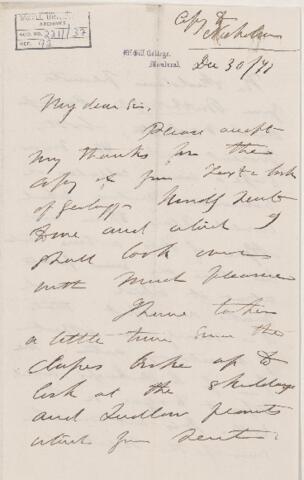 McGILL UNIV
ARCHIVES
ACC. NO. 2211/37
REF. 92
Copy to
Nicholson
McGill College,
Montreal.
Dec 30/71
My dear Sir,
Please accept
my thanks for the
copy of your Text book
of Geology kindly sent
to me and which I
shall look over
with much pleasure
I have taken
a little time since the
classes broke up to
look at the Skiddaw
and Ludlow plants
which you sent